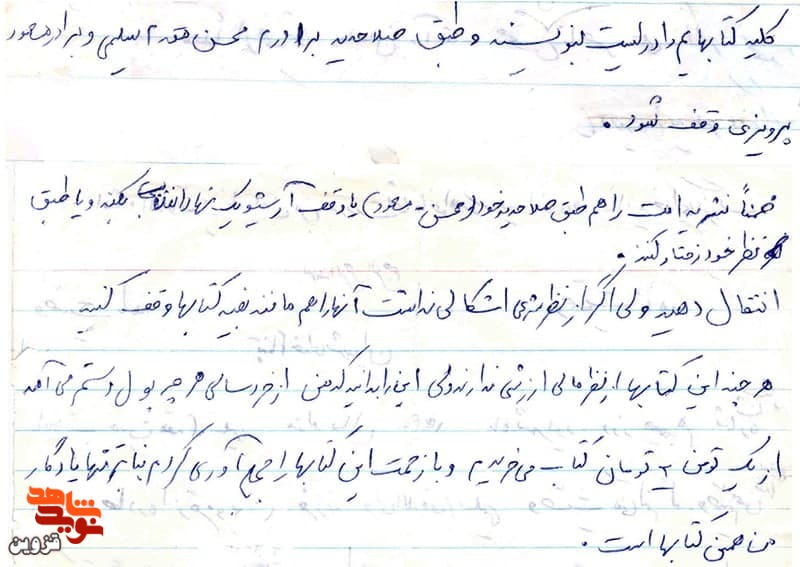 کلیه کتابهایم را در لیست بنویسند و طبق صلاحدید برادرم محسن مقدم سلیمی و برادر مسعود
پرویزی وقف شود.
ضمناً نشریه امت را هم طبق صلاحدید خود (محسن - مسعود) یا وقف آرشیو یک نهاد انقلابی بکنند و یا طبق
نظر خود رفتار کنند.
انتقال دهید ولی اگر از نظر شرعی اشکالی نداشت آنها را هم مانند بقیه کتابها وقف کنید
هر چند این کتابها از نظر مالی ارزشی ندارند ولی این را بدانید که من از خردسالی هر چه پول دستم می آمد
از یک تومن ۲ تومان کتاب می خریدم و با زحمت این کتابها را جمع آوری کردم بنابراین تنها یادگار
من همین کتابها است.
نوید شاهد
قزوین